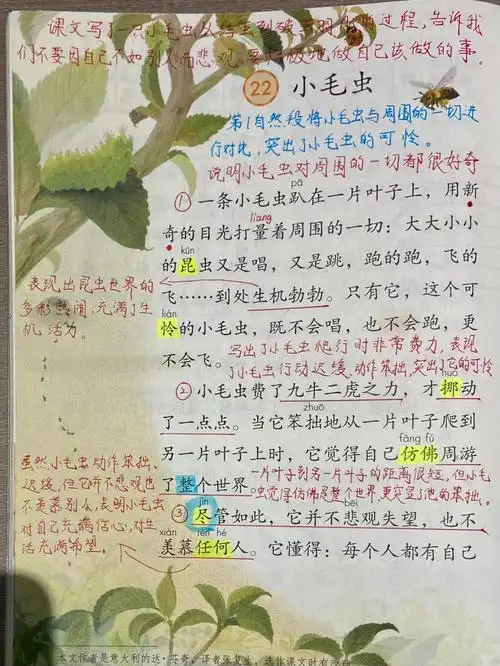 课文写了一只小毛虫从结茧到破茧羽化的过程,告诉我
们不要因自己不如别人而悲观,要积极地做自己该做的事。
22 小毛虫
第1自然段将小毛虫与周围的一切进
行对比,突出了小毛虫的可怜。
说明小毛虫对周围的一切都很好奇
pā
① 一条小毛虫趴在一片叶子上,用新
liang
奇的目光打量着周围的一切:大大小小
kūn
的昆虫又是唱,又是跳,跑的跑,飞的
飞……到处生机勃勃。只有它,这个可
lián
怜的小毛虫,既不会唱,也不会跑,更
不会飞。
表现出昆虫世界的
多彩热闹,充满了生
机活力。
写出了小毛虫爬行时非常费力,表现
小毛虫行动迟缓,动作笨拙,突出了它的可怜
huó
② 小毛虫费了九牛二虎之力,才挪动
zhuō
了一点点。当它笨拙地从一片叶子爬到
fǎng fú
另一片叶子上时,它觉得自己仿佛周游
了整个世界。
一片叶子到另一片叶子的距离很短,但小毛
虫觉得仿佛是整个世界,更突显了他的笨拙。
jǐn bēi
③ 尽管如此,它并不悲观失望,也不
xiàn rèn hé
羡慕任何人。它懂得:每个人都有自己
虽然小毛虫动作笨拙、
迟缓,但它并不悲观也
不羡慕别人,表明小毛虫
对自己充满信心,对生
活充满希望。
本文作者是意大利的达·芬奇,译者张复生,选作课文时有改动